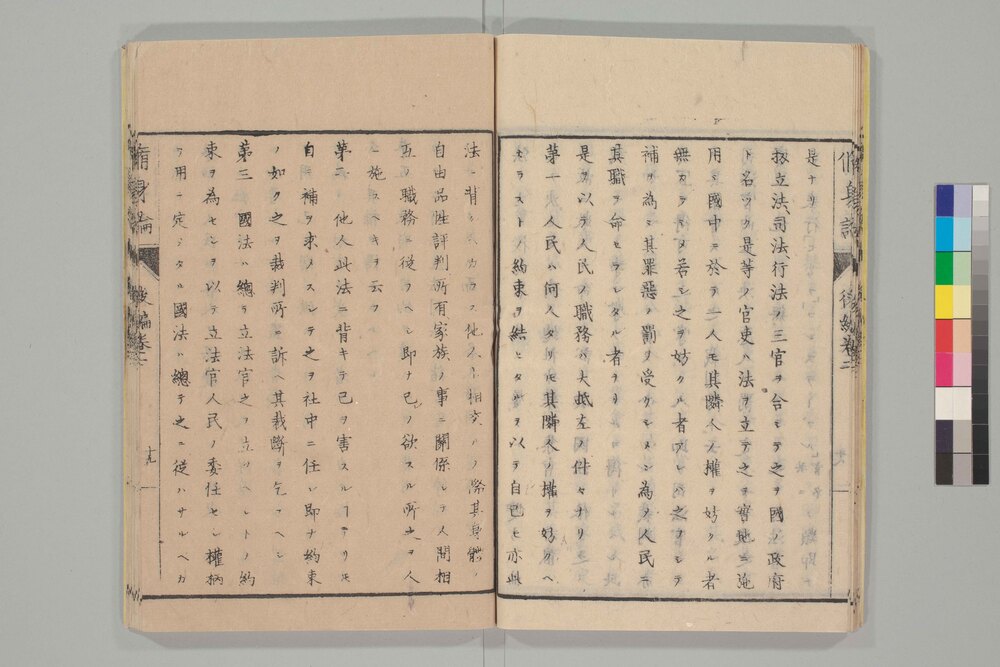 是ナリ
扨立法、司法、行法ノ三官ヲ合シテ之ヲ國ノ政府
ト名ツク是等ノ官吏ハ法ヲ立テ之ヲ實地ニ施
用シ國中ニ於テ一人モ其隣人ノ權ヲ妨クル者
無カラシメ若シ之ヲ妨クル者アレハ之ヲシテ
補ヲ為シ其罪惡ノ罰ヲ受ケシメン為メ人民ニ
其職ヲ命セラレタル者ナリ
是ヲ以テ人民ノ職務ハ大抵左ノ件々ナリ
第一人民ハ何人タリモ其隣人ノ權ヲ妨クヘ
カラストノ約束ヲ結ヒタルヲ以テ自己モ亦此
法ニ背ク他人ト相交ハルノ際其身體、
自由品性評判所有家族ノ事ニ關係シテ人間相
互ノ職務ニ從フヘシ即ナ己ノ欲スル所之ヲ人
ニ施スヘキヲ云フ
第二他人此法ニ背キテ己ヲ害スルヿアリモ
自ラ補ヲ求メスシテ之ヲ社中ニ任シ即ナ約束
ノ如ク之ヲ裁判所ニ訴ヘ其裁斷ヲ乞フヘシ
第三國法ハ總テ立法官之ヲ立ツヘシトノ約
束ヲ為セシヲ以テ立法官人民ノ委任セシ權柄
ヲ用ニ定シタル國法ハ總テ之ニ從ハサルヘカ
脩身論 後編卷二
十九